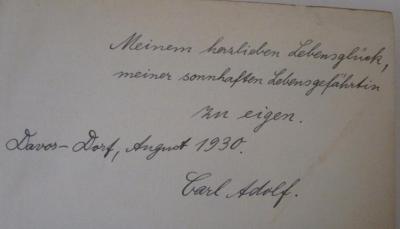 Meinem herrlieben Lebensglück,
meiner sonnhaften Lebensgefährtin
zu eigen.
Davos-Dorf, August 1930.
Carl Adolf.